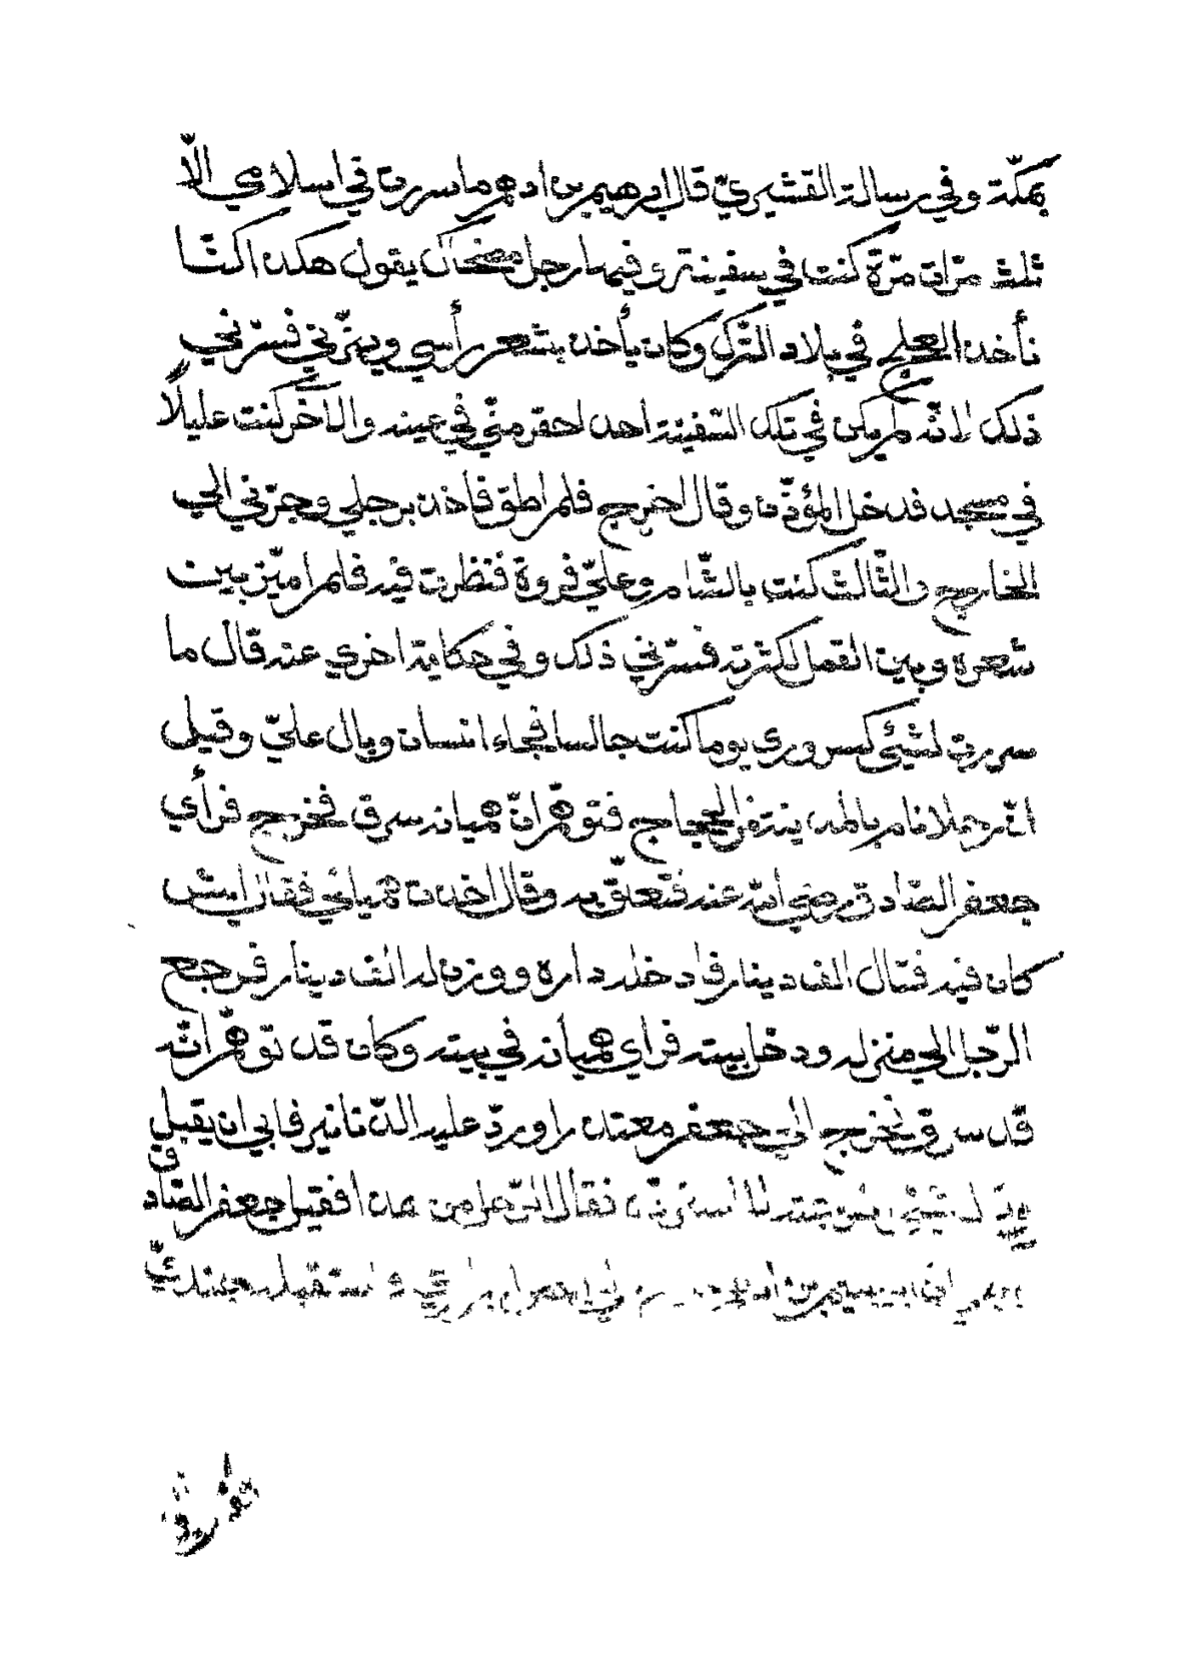 بمكّة وفي رسالة القشيريّ قال ابرهيم بن ادهم ما سررت في اسلامي الّا
ثلث مرّات مرّة كنت في سفينة وفيها رجل مضحاك يقول هكذا كنّا
نأخذ العلج في بلاد الترك وكان يأخذ بشعر رأسي ويهزّني فسرّني
ذلك لانّه لم يكن في تلك السّفينة احد احقر منّي في عينه والآخر كنت عليلًا
في مسجد فدخل المؤذّن وقال اخرج فلم اطق فأخذ برجلي وجرّني الي
الخارج والثّالث كنت بالشّام وعليّ فروة فنظرت فيه فلم اميّز بين
شعره وبين القمل لكثرته فسرّني ذلك وفي حكاية اخري عنه قال ما
سررت لشيئ كسروري يوما كنت جالسا فجاء انسان وبال عليّ وقيل
انّ رجلا نام بالمدينة من الحجاج فتوهّم انّ هميانه سرق فخرج فرأي
جعفر الصّادق رضي الله عنه فتعلّق به وقال اخذت همياني فقال ايش
كان فيه فقال الف دينار فادخله داره ووزن له الف دينار فرجع
الرّجل الي منزله ودخل بيته فرأي هميانه في بيته وكان قد توهّم انّه
قد سرق فخرج الي جعفر معتذرا وردّ عليه الدّنانير فابي ان يقبل
فقال الرّجل من هذا فقيل جعفر الصّادق
ابرهيم بن ادهم الي فاستقبله جنديّ